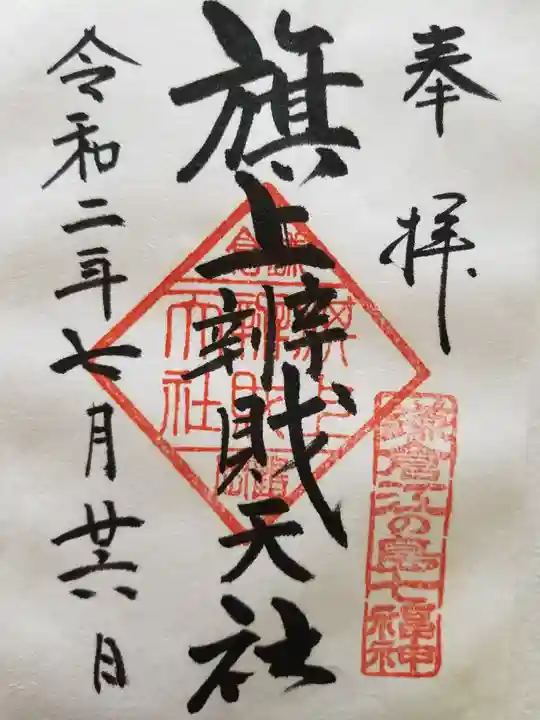 奉拝
鎌倉江の島七福神
旗上辨財天社
令和二年七月廿六日